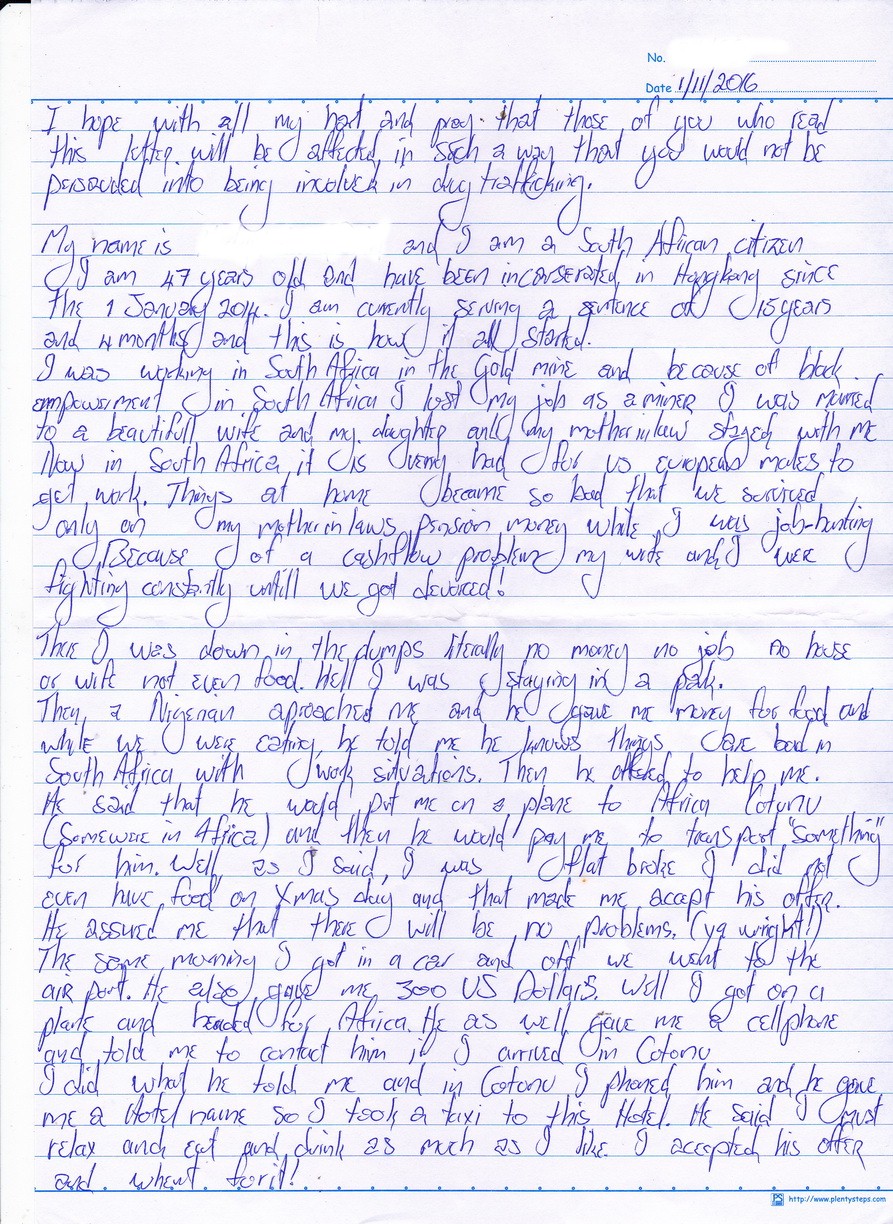 No.
Date 1/11/2016
I hope with all my hart and pray that those of you who read
this letter will be affected in such a way that you would not be
persauded into being involved in drug trafficking.
My name is and I am a South African citizen
I am 47 years old and have been incarserated in Hongkong since
the 1 January 2014. I am currently serving a sentence of 15 years
and 4 months and this is how it all started.
I was working in South Africa in the Gold mine and because of black
empowerment in South Africa I lost my job as a miner I was married
to a beautifull wife and my daughter and my mother in law stayed with me
Now in South Africa it is verry hard for us european males to
get work. Things at home became so bad that we survived
only on my mother in laws pension money while I was job-hunting
Because of a cashflow problem my wife and I were
fighting constantly untill we got devorced!
There I was down in the dumps literally no money no job no house
or wife not even food. Hell I was staying in a park.
Then a Nigerian aproached me and he gave me money for food and
while we were eating he told me he knows things are bad in
South Africa with work situations. Then he offered to help me.
He said that he would put me on a plane to Africa Cotonu
(Somewere in Africa) and then he would pay me to transport "something"
for him. Well, as I said, I was flat broke I did not
even have food on Xmas day and that made me accept his offer.
He assured me that there will be no problems. (ya wright!)
The same morning I got in a car and off we went to the
air port. He also gave me 300 US Dollars. Well I got on a
plane and headed for Africa. He as well gave me a cellphone
and told me to contact him if I arrived in Cotonu
I did what he told me and in Cotonu I phoned him and he gave
me a Hotel name so I took a taxi to this Hotel. He said I must
relax and eat and drink as much as I like. I accepted his offer
and whent for it!
PS http://www.plentysteps.com